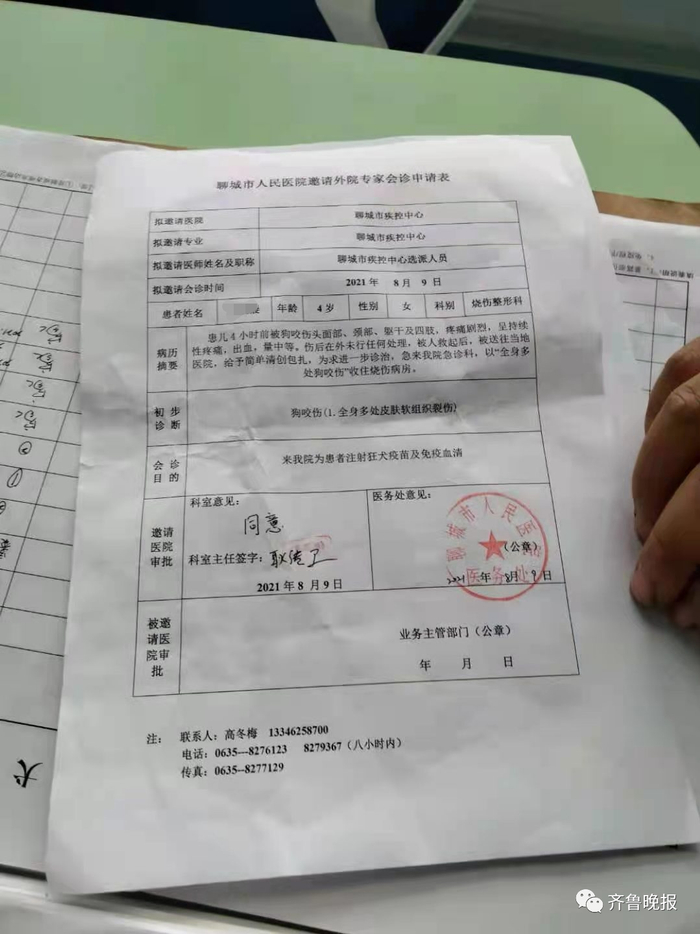 聊城市人民医院邀请外院专家会诊申请表
拟邀请医院 聊城市疾控中心
拟邀请专业 聊城市疾控中心
拟邀请医师姓名及职称 聊城市疾控中心选派人员
拟邀请会诊时间 2021 年 8 月 9 日
患者姓名 年龄 4 岁 性别 女 科别 烧伤整形科
病历
摘要
患儿 4 小时前被狗咬伤头面部、颈部、躯干及四肢，疼痛剧烈，呈持续
性疼痛，出血，量中等。伤后在外未行任何处理，被人救起后，被送往当地
医院，给予简单清创包扎，为求进一步诊治，急来我院急诊科，以“全身多
处狗咬伤”收住烧伤病房。
初步
诊断
狗咬伤(1.全身多处皮肤软组织裂伤)
会诊
目的
来我院为患者注射狂犬疫苗及免疫血清
邀请
医院
审批
科室意见：
同意
科室主任签字：
2021 年 8 月 9 日
医务处意见：
聊城市人民医院
（公章）
医务处
2021 年 8 月 9 日
被邀
请医
院审
批
业务主管部门（公章）
年 月 日
注： 联系人：高冬梅 13346258700
电话：0635---8276123 8279367（八小时内）
传真：0635--8277129
犬
齐鲁晚报